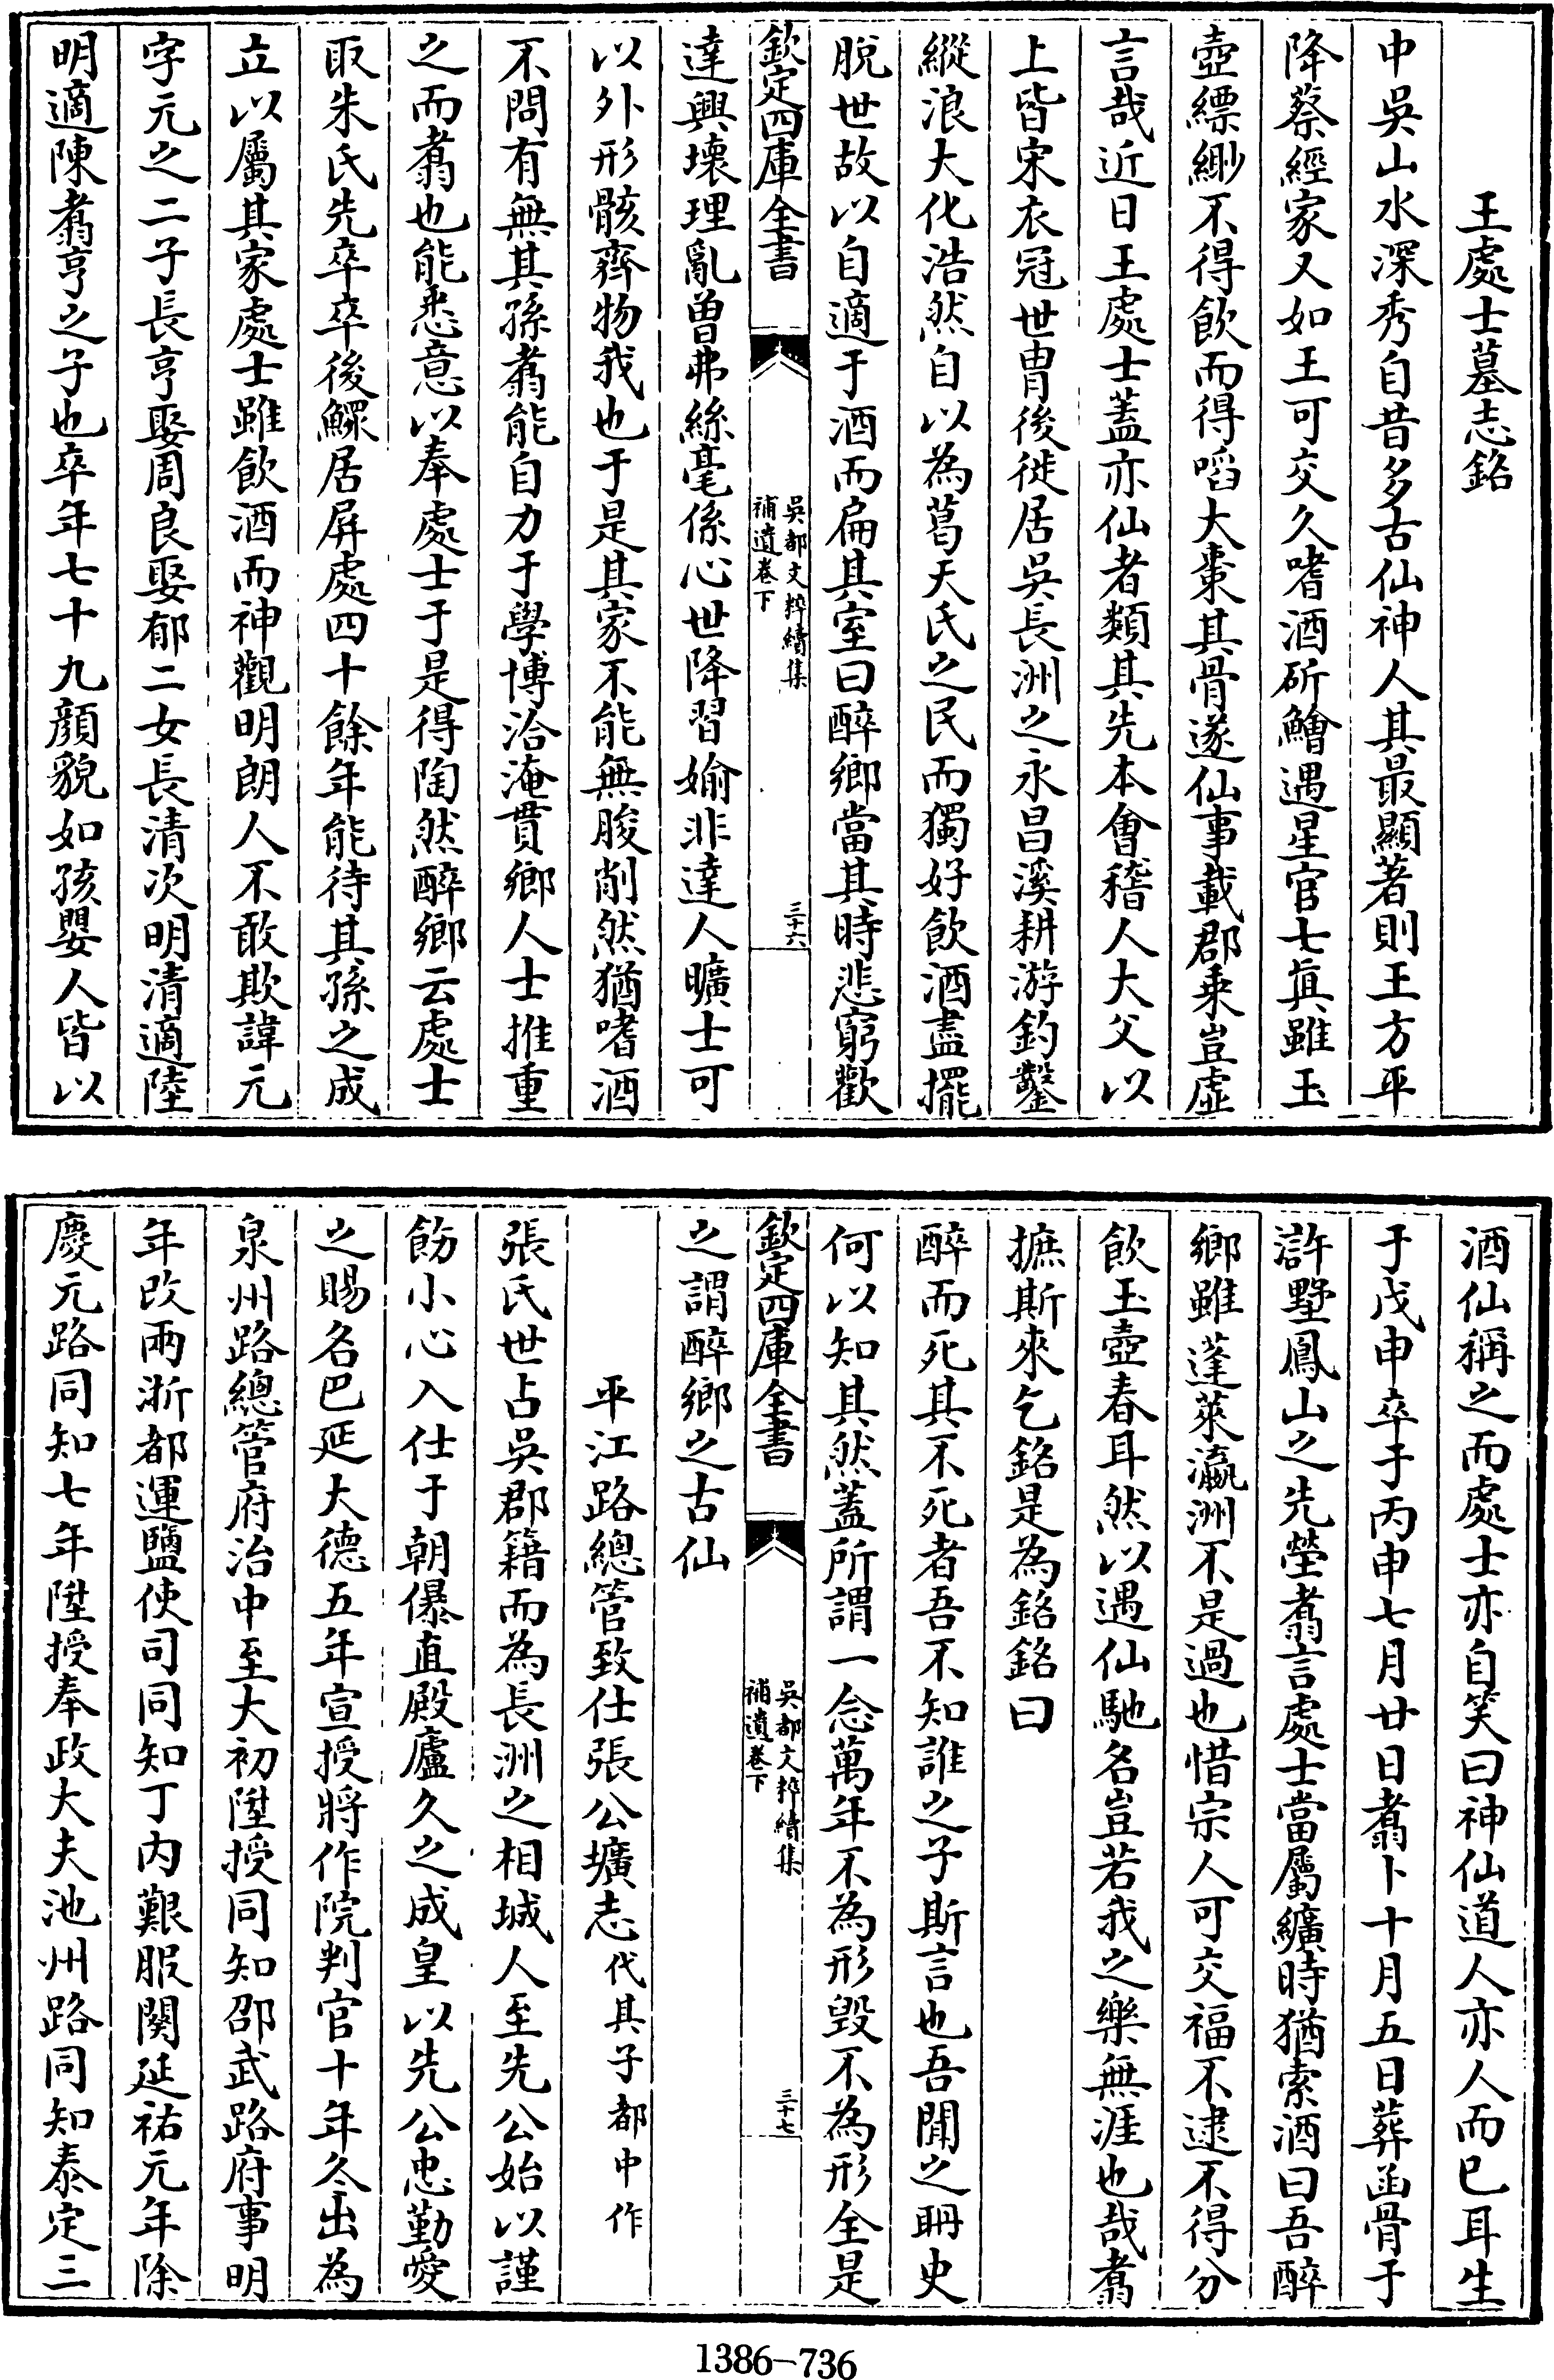 王處士墓志銘
中吳山水深秀自昔多古仙神人其最顯著則王方平
降蔡經家又如王可交久嗜酒斫鱠遇星官七眞雖玉
壺縹緲不得飲而得啗大棗其骨遂仙事載郡乗豈虚
言哉近日王處士蓋亦仙者類其先本會稽人大父以
上皆宋衣冠世胄後徙居吳長洲之永昌溪耕游釣鑿
縱浪大化浩然自以為葛天氏之民而獨好飲酒盡擺
脫世故以自適于酒而扁其室曰醉鄉當其時悲窮歡
欽定四庫全書
吳都文粹續集
補遺卷下
三十六
達興壞理亂曽弗絲毫係心世降習婾非達人曠士可
以外形骸齊物我也于是其家不能無朘削然猶嗜酒
不問有無其孫翥能自力于學博洽淹貫鄉人士推重
之而翥也能悉意以奉處士于是得陶然醉鄉云處士
取朱氏先卒卒後鰥居屏處四十餘年能待其孫之成
立以屬其家處士雖飲酒而神觀明朗人不敢欺諱元
字元之二子長亨娶周良娶郁二女長清次明清適陸
明適陳翥亨之子也卒年七十九顔貌如孩嬰人皆以
酒仙稱之而處士亦自笑曰神仙道人亦人而已耳生
于戊申卒于丙申七月廿日翥卜十月五日葬函骨于
滸墅鳳山之先塋翥言處士當屬纊時猶索酒曰吾醉
鄉雖蓬萊瀛洲不是過也惜宗人可交福不逮不得分
飲玉壺春耳然以遇仙馳名豈若我之樂無涯也哉翥
摭斯來乞銘是為銘銘曰
醉而死其不死者吾不知誰之子斯言也吾聞之冊史
何以知其然蓋所謂一念萬年不為形毀不為形全是
欽定四庫全書
吳都文粹續集
補遺卷下
三十七
之謂醉鄉之古仙
平江路總管致仕張公壙志代其子都中作
張氏世占吳郡籍而為長洲之相城人至先公始以謹
飭小心入仕于朝儤直殿廬久之成皇以先公忠勤愛
之賜名巴延大德五年宣授將作院判官十年冬出為
泉州路總管府治中至大初陞授同知邵武路府事明
年改兩浙都運鹽使司同知丁内艱服闋延祐元年除
慶元路同知七年陞授奉政大夫池州路同知泰定三
1386-736